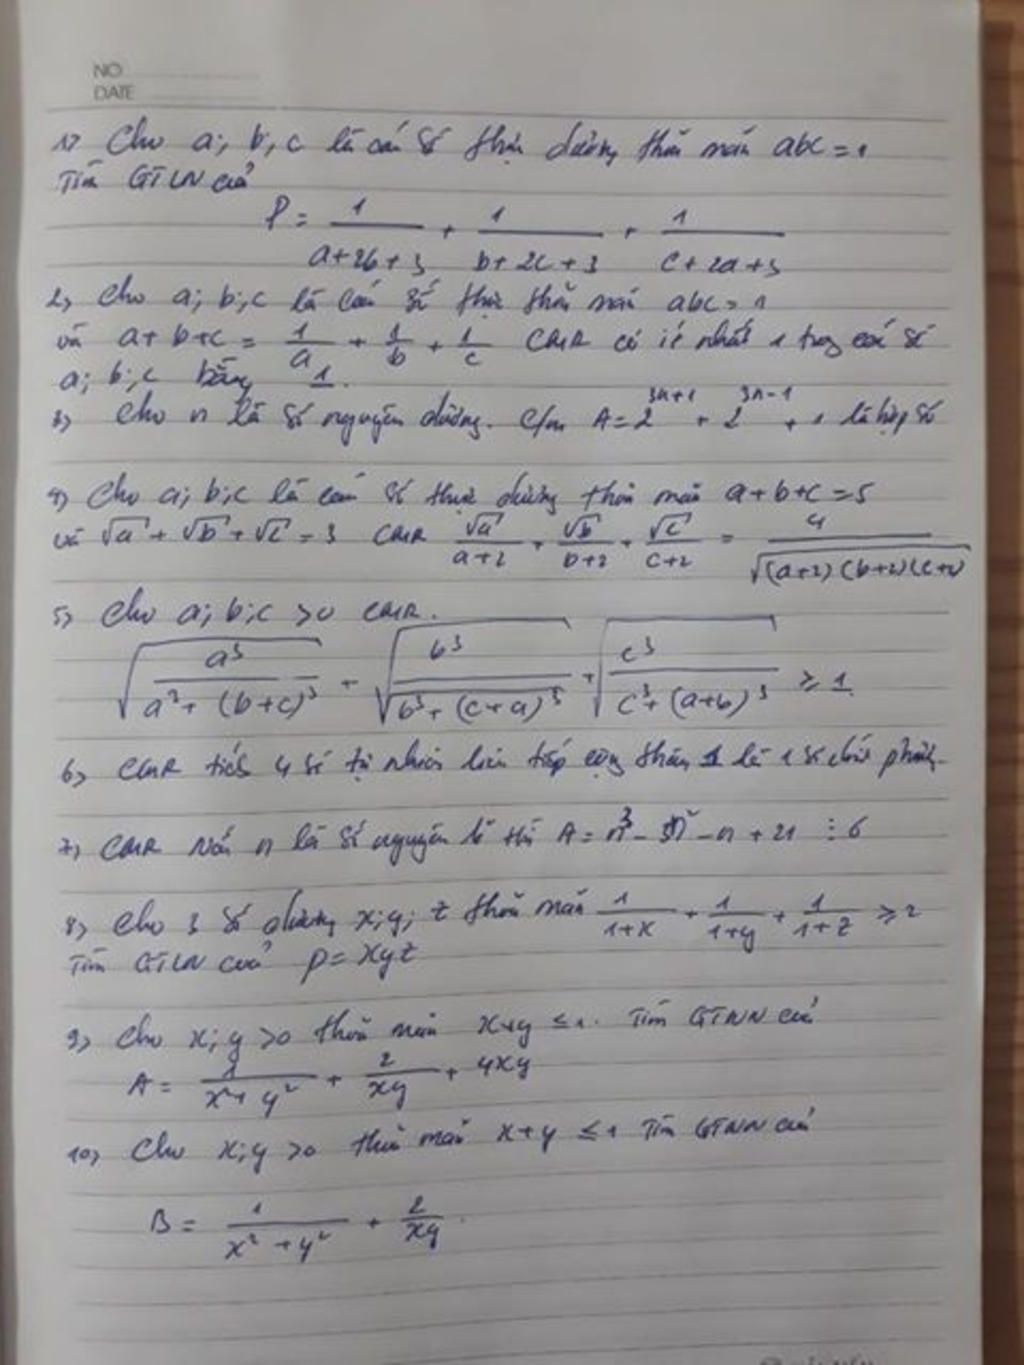 NO
DATE
1) Cho a; b; c là các số thực dương thỏa mãn abc = 1
Tìm GTLN của
P = 1/(a+2b+3) + 1/(b+2c+3) + 1/(c+2a+3)
2) Cho a; b; c là các số thực thỏa mãn abc = 1
và a+b+c = 1/a + 1/b + 1/c CMR có ít nhất 1 trong các số
a; b; c bằng 1.
3) Cho n là số nguyên dương. C/m A = 2^(3n+1) + 2^(3n-1) + 1 là hợp số
4) Cho a; b; c là các số thực dương thỏa mãn a+b+c = 5
và √a + √b + √c = 3 CMR √a/(a+2) + √b/(b+2) + √c/(c+2) = 4/√((a+2)(b+2)(c+2))
5) Cho a; b; c > 0 CMR.
√(a³/(a³+(b+c)³)) + √(b³/(b³+(c+a)³)) + √(c³/(c³+(a+b)³)) ≥ 1
6) CMR tích 4 số tự nhiên liên tiếp cộng thêm 1 là 1 số chính phương.
7) CMR Nếu n là số nguyên lẻ thì A = n³ - 3n² - n + 21 ⋮ 6
8) Cho 3 số dương x; y; z thỏa mãn 1/(1+x) + 1/(1+y) + 1/(1+z) ≥ 2
Tìm GTLN của P = xyz
9) Cho x; y > 0 thỏa mãn x+y ≤ 1. Tìm GTNN của
A = 1/(x²+y²) + 2/(xy) + 4xy
10) Cho x; y > 0 thỏa mãn x+y ≤ 1 Tìm GTNN của
B = 1/(x²+y²) + 2/(xy).